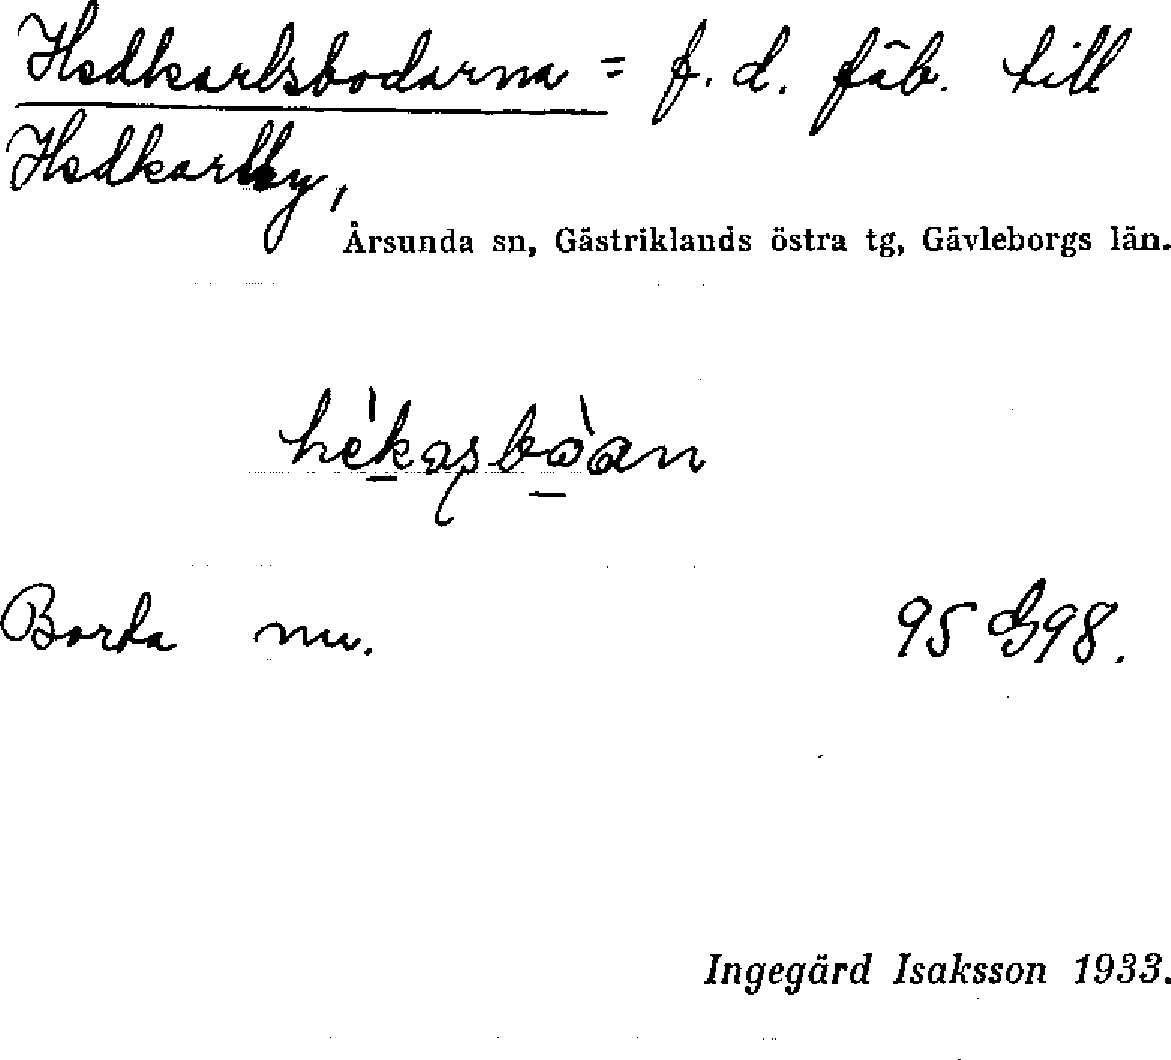 Hedkarlsbodarna = f. d. fäb. till
Hedkarlby,
Årsunda sn, Gästriklands östra tg, Gävleborgs län.
Borta nu.
95 G98.
Ingegärd Isaksson 1933.